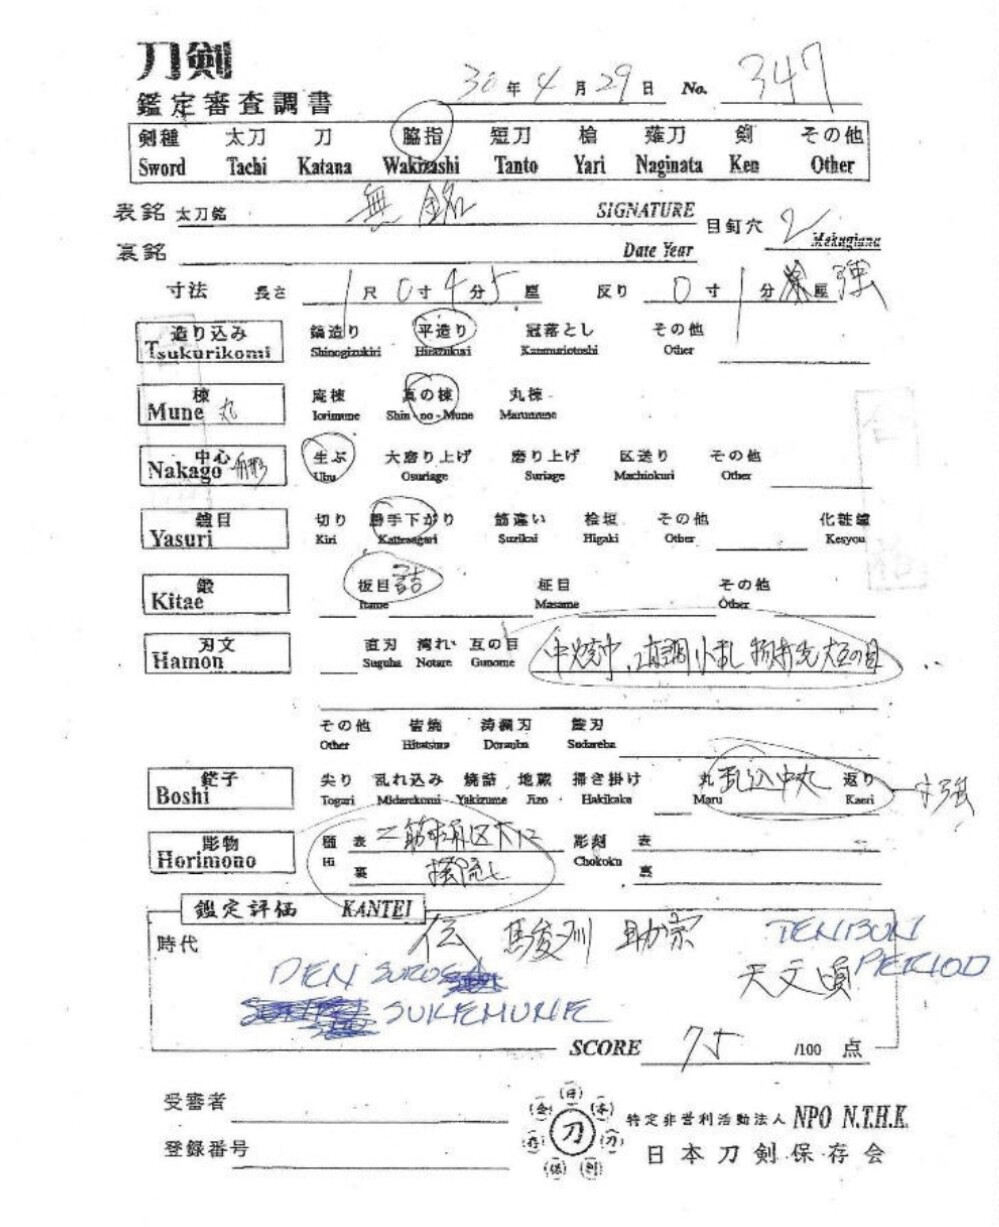 刀剣
鑑定審査調書
30年4月29日 No. 347
剣種 太刀 刀 脇指 短刀 槍 薙刀 剣 その他
Sword Tachi Katana Wakizashi Tanto Yari Naginata Ken Other
表銘 太刀銘 無銘 SIGNATURE 目釘穴 2 Mekugiana
裏銘 Date Year
寸法 長さ 1尺0寸4分5厘 反り 0寸1分 厘 強
造り込み 鎬造り 平造り 冠落とし その他
Tsukurikomi Shinogizukiri Hirazukuri Kanmuriotoshi Other
棟 庵棟 真の棟 丸棟
Mune 丸 Iorimune Shin-no-Mune Marumune
中心 生ぶ 大磨り上げ 磨り上げ 区送り その他
Nakago 舟形 Ubu Osuriage Suriage Machiokuri Other
鑢目 切り 勝手下がり 筋違い 桧垣 その他 化粧鑢
Yasuri Kiri Kattesagari Suzikai Higaki Other Kesyou
鍛 板目 詰 柾目 その他
Kitae Itame Masame Other
刃文 直刃 湾れ 互の目 中焼巾、直調小乱 物打先大互の目
Hamon Suguha Notare Gunome
その他 皆焼 涛瀾刃 簾刃
Other Hitatsura Doranba Sudareba
鋩子 尖り 乱れ込み 焼詰 地蔵 掃き掛け 丸 乱込中丸 返り 中強
Boshi Togari Midarekomi Yakizume Jizo Hakikake Maru Kaeri
彫物 樋 表 二筋樋区下に 彫刻 表
Horimono Hi 裏 掻流し Chokoku 裏
鑑定評価 KANTEI
時代 伝 駿州 助宗 TENBUN
DEN 天文頃 PERIOD
SUKEMUNE
SCORE 75 /100 点
受審者
登録番号
刀
特定非営利活動法人 NPO N.T.H.K.
日本刀剣保存会